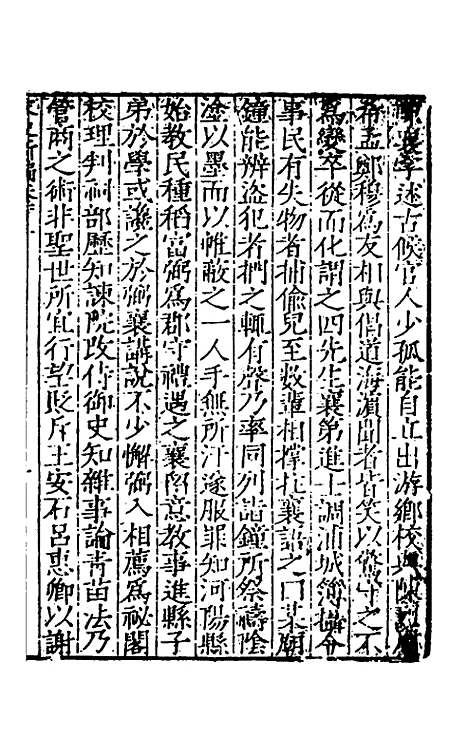 陳襄字述古候官人少孤能自立出游鄉校與陳烈周
希孟鄭穆爲友相與倡道海濵聞者皆笑以驚守之不
爲變卒從而化謂之四先生襄第進士調浦城簿攝令
事民有失物者捕偷兒至數輩相撑拄襄語之曰某廟
鐘能辨盗犯者捫之輒有聲乃率同列詣鐘所祭禱陰
塗以墨而以帷蔽之一人手無所汙遂服罪知河陽縣
始教民種稻富弼爲郡守禮遇之襄留意教事進縣子
弟於學或讒之於弼襄講説不少懈弼入相薦爲祕閣
校理判祠部歷知諫院改侍御史知雜事論青苗法乃
管商之術非聖世所宜行望貶斥王安石呂惠卿以謝